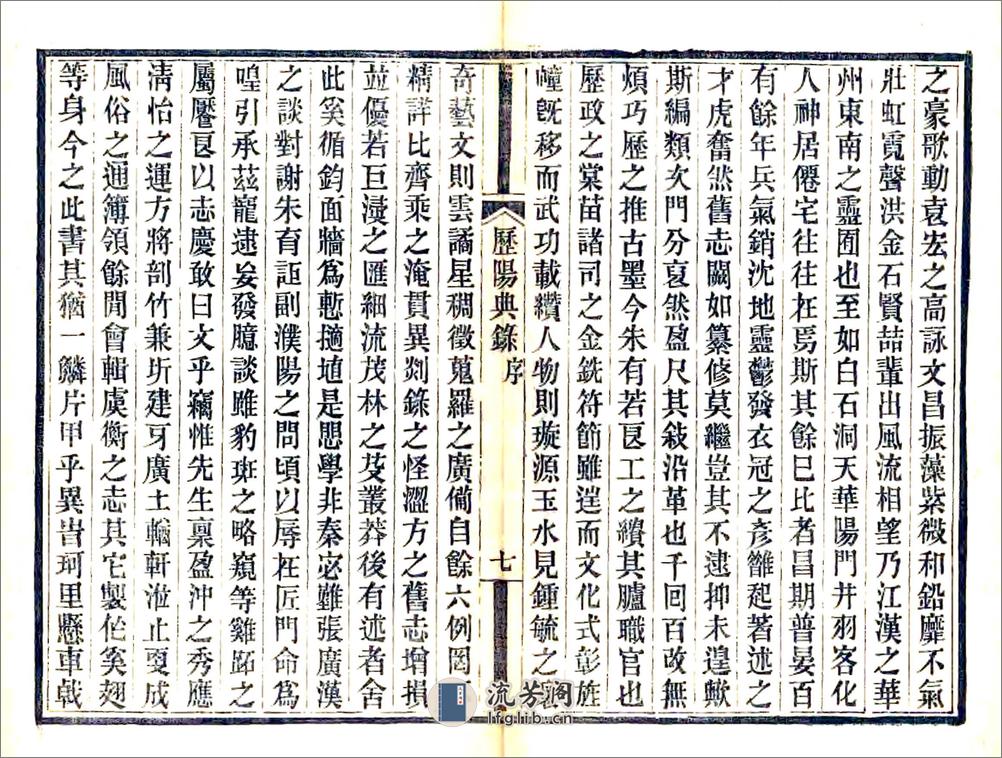 之豪歌動袁宏之高詠文昌振藻紫微和鉛靡不氣
壯虹霓聲洪金石賢喆輩出風流相望乃江漢之華
州東南之靈囿也至如白石洞天華陽門井羽客化
人神居僊宅往往在焉斯其餘已比者昌期普晏百
有餘年兵氣銷沈地靈鬱發衣冠之彥雒起著述之
才虎奮然舊志闕如纂修莫繼豈其不逮抑未遑歟
斯編類次門分裒然盈尺其敍沿革也千回百改無
煩巧歷之推古墨今朱有若良工之繢其臚職官也
歷政之棠苗諸司之金銑符節雖遑而文化式彰旌
幢旣移而武功載纘人物則璇源玉水見鍾毓之
歷陽典錄 序 七
奇藝文則雲譎星稠徵蒐羅之廣備自餘六例罔
精詳比齊乘之淹貫異剡錄之怪澀方之舊志增損
竝優若巨浸之匯細流茂林之芟叢莽後有述者舍
此奚循鈞面牆爲慙擿埴是思學非秦宓難張廣漢
之談對謝朱育詎副濮陽之問頃以辱在匠門命爲
喤引承茲寵逮妄發臆談雖豹斑之略窺等雞跖之
屬饜良以志慶敢曰文乎竊惟先生稟盈沖之秀應
淸怡之運方將剖竹兼圻建牙廣土輶軒涖止叓成
風俗之通簿領餘閒會輯虞衡之志其它製作奚翅
等身今之此書其猶一鱗片甲乎異旹珂里懸車戟
流芳閣
lfglib.cn